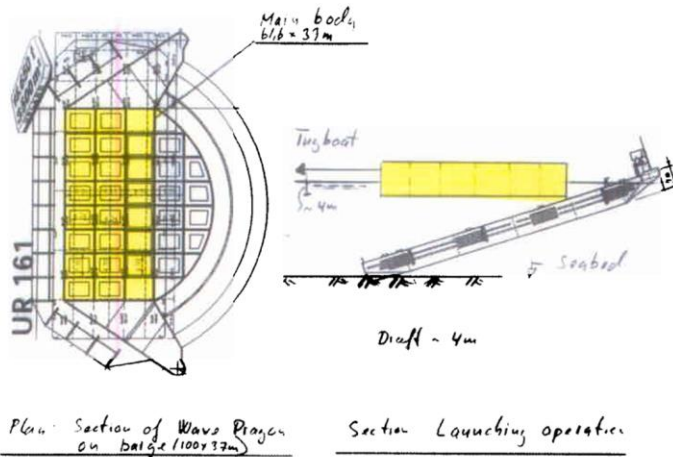 Main body
61,6 x 33m
Tugboat
~ 4m
UR 161
Seabed
Draft ~ 4m
Plan Section of Wave Dragon
on barge (100x37m)
Section Launching operation